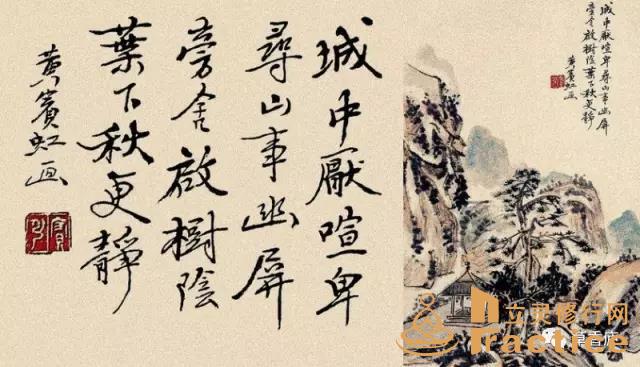 城中厭喧卑
尋山事幽屏
旁舍啟樹陰
葉下秋更靜
黄賓虹画
城中厭喧卑尋山事幽屏
旁舍啟樹陰葉下秋更靜
黄賓虹画
立灵修行网
Tractice